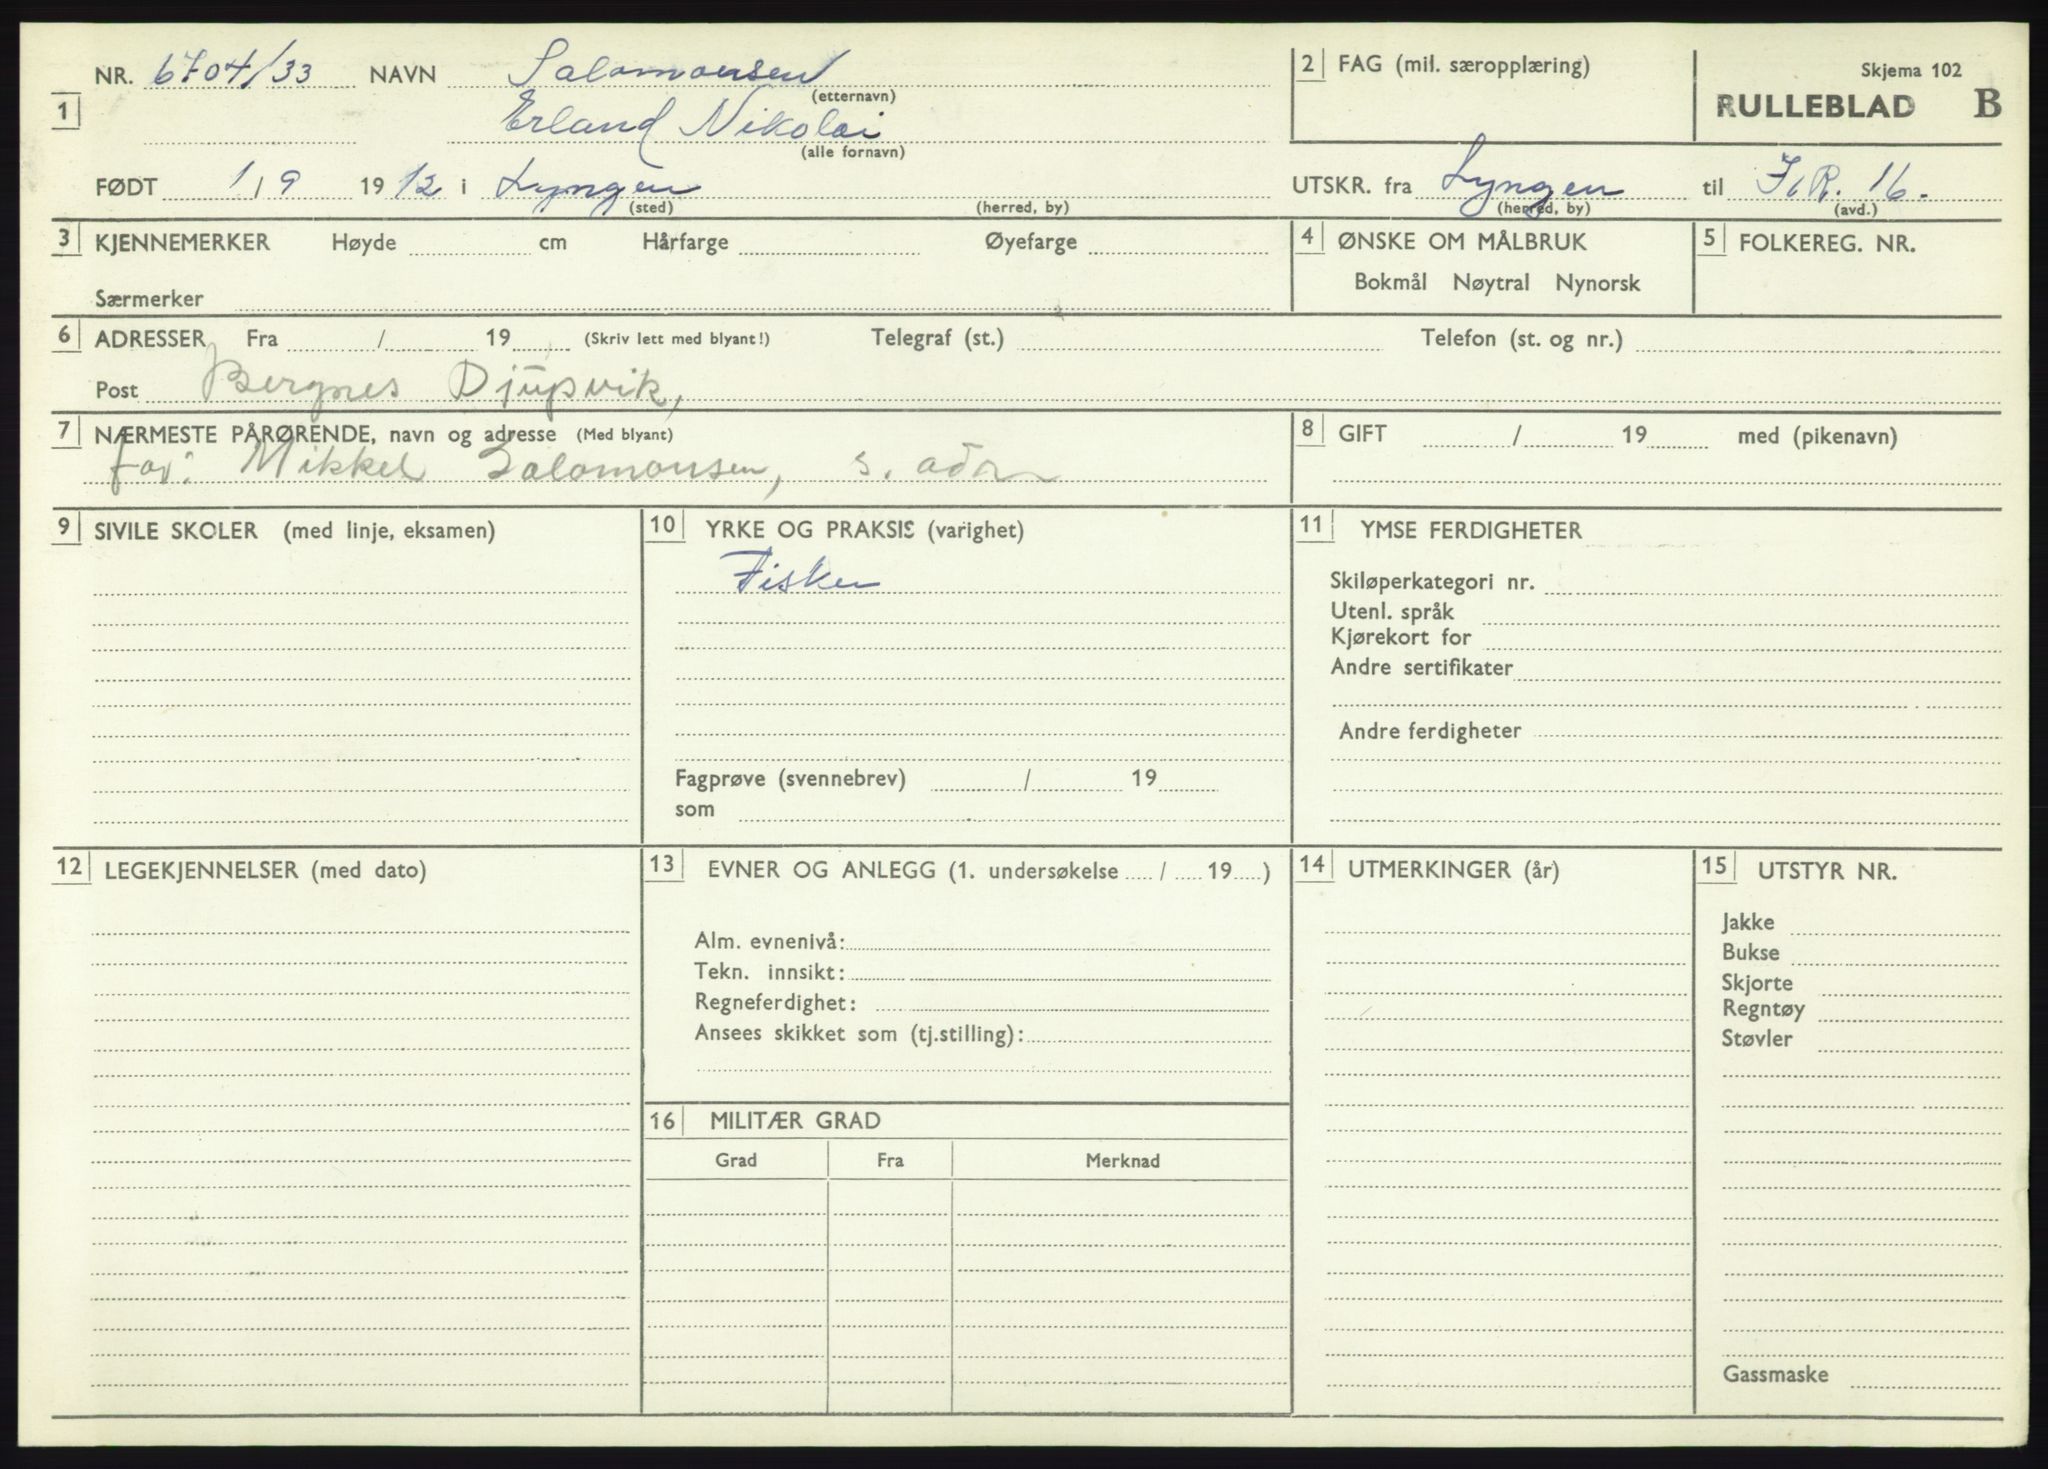 NR. 6704/33 NAVN Salomonsen
(etternavn)
1
Erland Nikolai
(alle fornavn)
FØDT 1/9 1912 i Lyngen
(sted) (herred, by)
2 FAG (mil. særopplæring)
Skjema 102
RULLEBLAD B
UTSKR. fra Lyngen til I.R. 16.
(herred, by) (avd.)
3 KJENNEMERKER Høyde cm Hårfarge Øyefarge
Særmerker
4 ØNSKE OM MÅLBRUK
Bokmål Nøytral Nynorsk
5 FOLKEREG. NR.
6 ADRESSER Fra / 19 (Skriv lett med blyant!) Telegraf (st.) Telefon (st. og nr.)
Post Bergnes Djupvik,
7 NÆRMESTE PÅRØRENDE, navn og adresse (Med blyant)
far: Mikkel Salomonsen, s. adr
8 GIFT / 19 med (pikenavn)
9 SIVILE SKOLER (med linje, eksamen)
10 YRKE OG PRAKSIS (varighet)
Fisker
Fagprøve (svennebrev) / 19
som
11 YMSE FERDIGHETER
Skiløperkategori nr.
Utenl. språk
Kjørekort for
Andre sertifikater
Andre ferdigheter
12 LEGEKJENNELSER (med dato)
13 EVNER OG ANLEGG (1. undersøkelse / 19 )
Alm. evnenivå:
Tekn. innsikt:
Regneferdighet:
Ansees skikket som (tj.stilling):
14 UTMERKINGER (år)
15 UTSTYR NR.
Jakke
Bukse
Skjorte
Regntøy
Støvler
Gassmaske
16 MILITÆR GRAD
Grad Fra Merknad